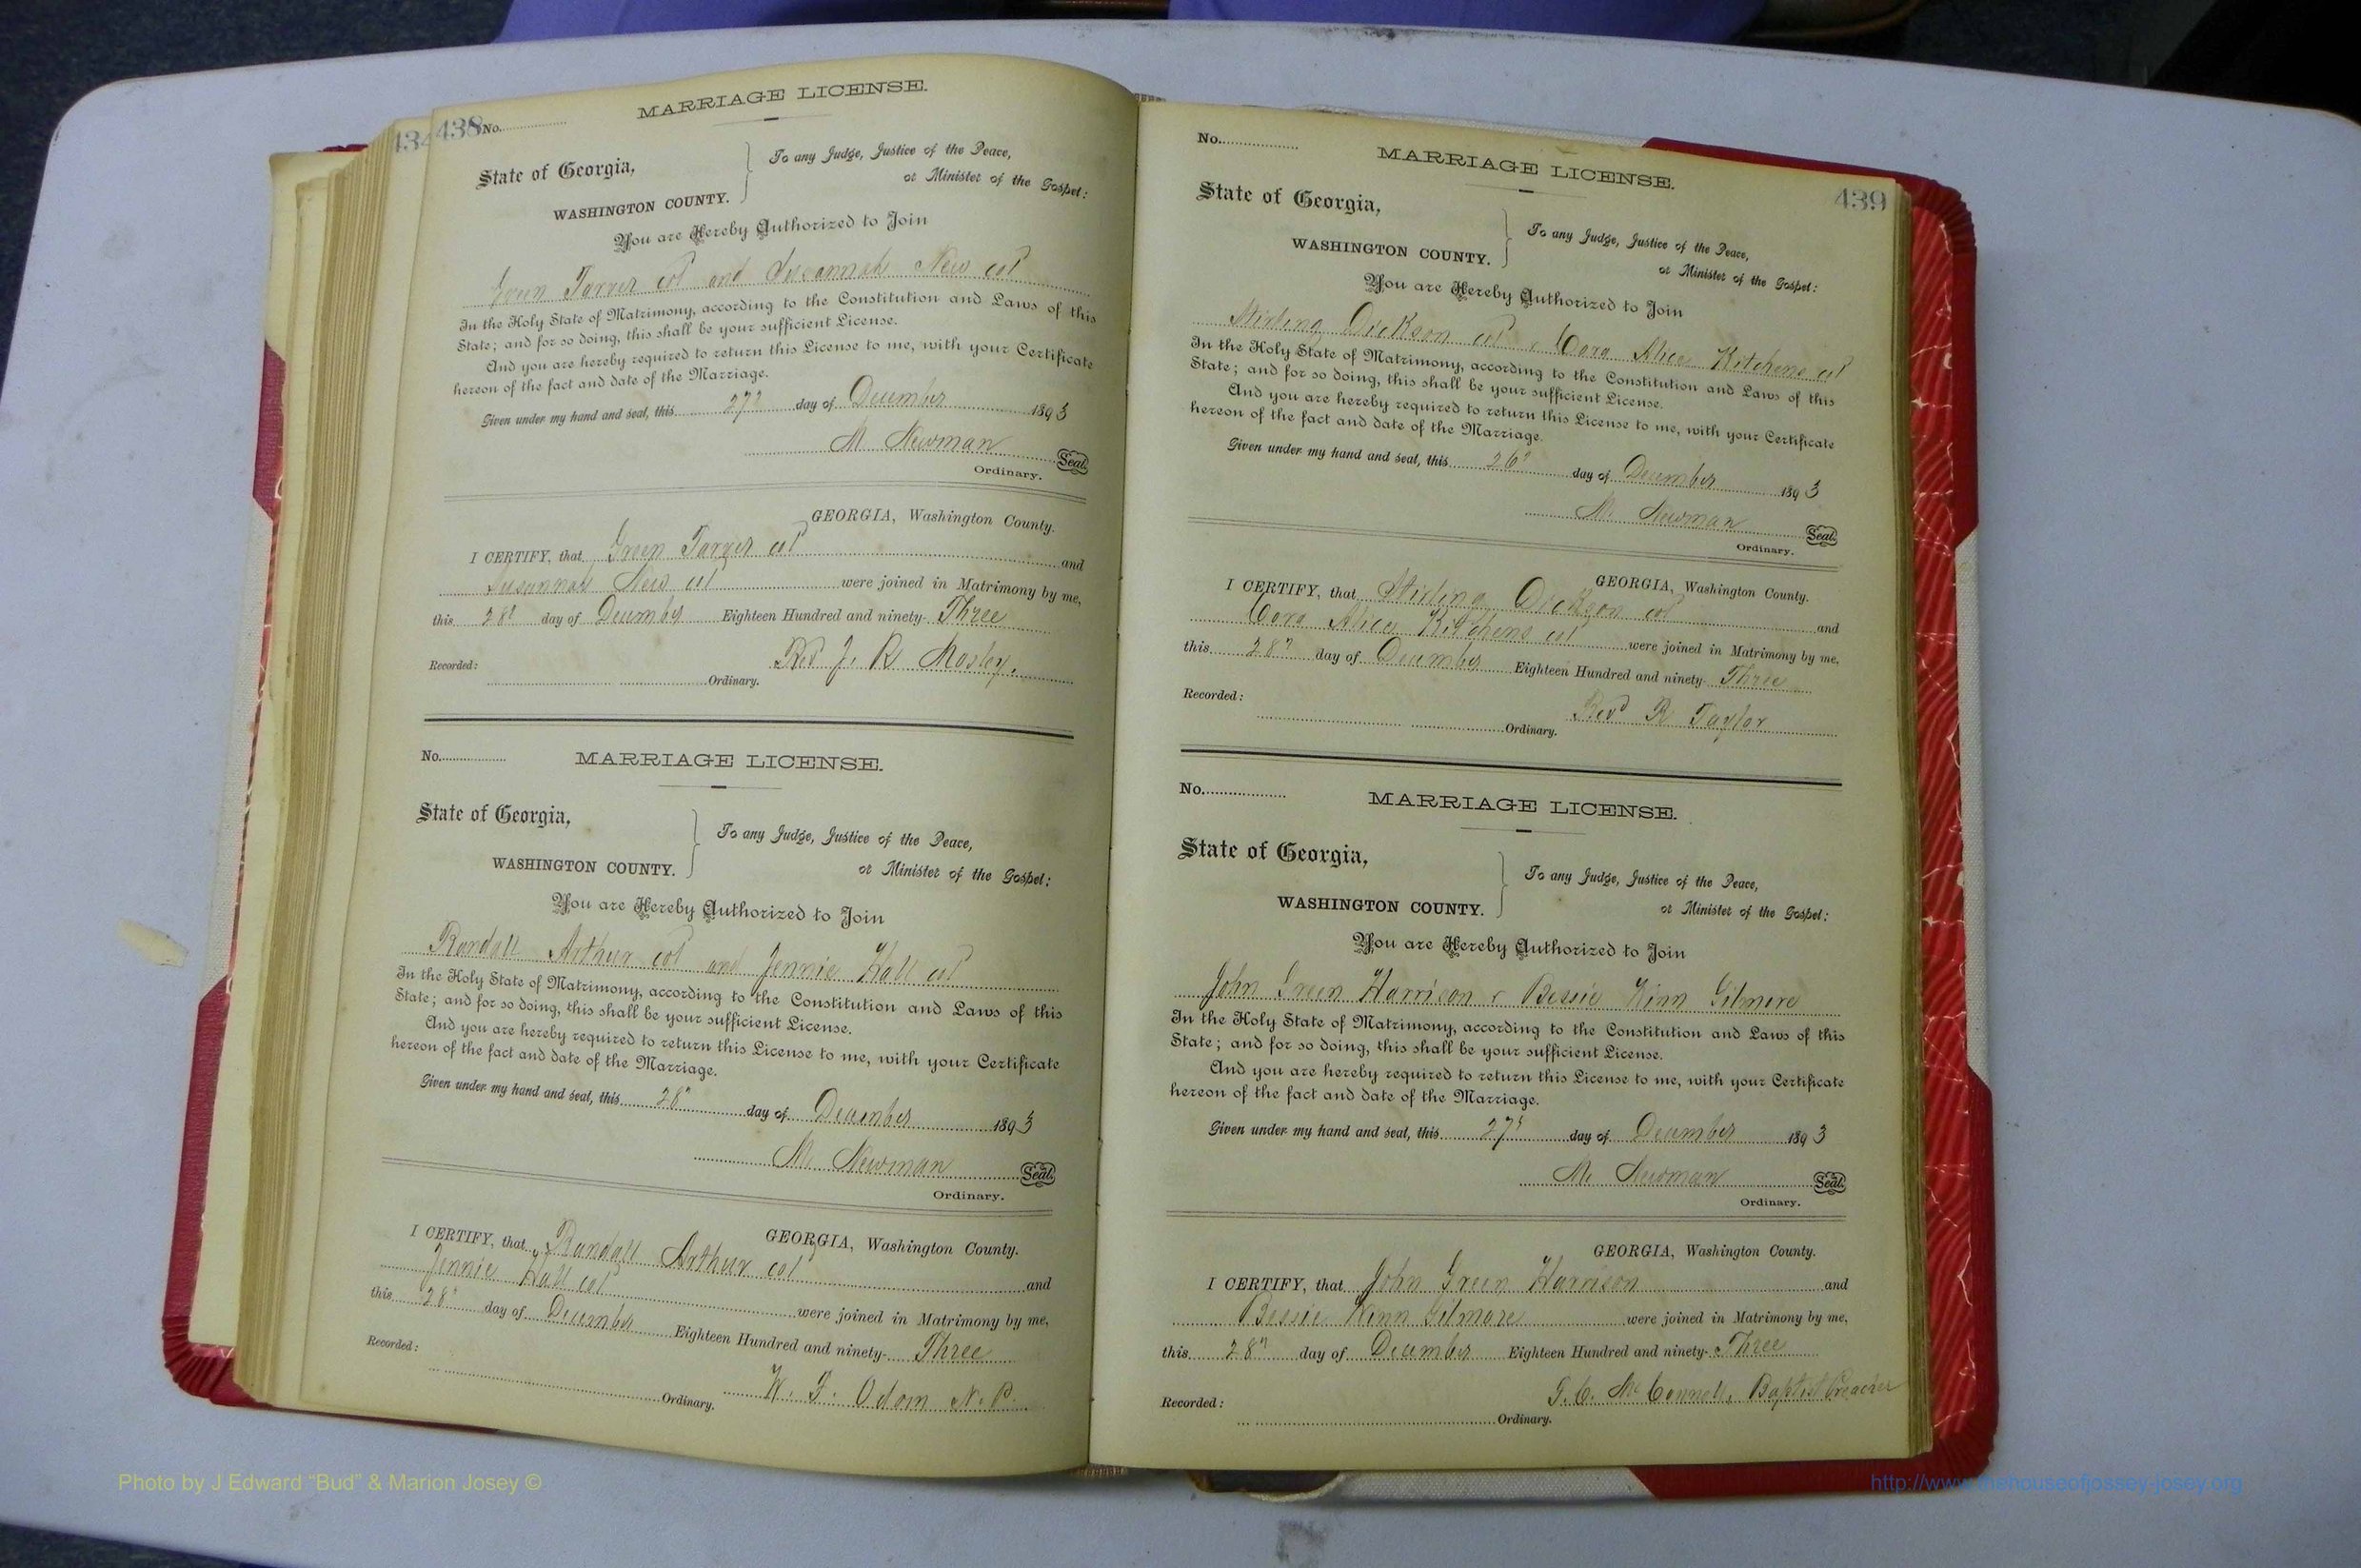 434
438 No.
MARRIAGE LICENSE.
State of Georgia,
WASHINGTON COUNTY.
To any Judge, Justice of the Peace,
or Minister of the Gospel:
You are Hereby Authorized to Join
Green Tarver col and Susannah New col
In the Holy State of Matrimony, according to the Constitution and Laws of this
State; and for so doing, this shall be your sufficient License.
And you are hereby required to return this License to me, with your Certificate
hereon of the fact and date of the Marriage.
Given under my hand and seal, this 27th day of December 1893
M. Newman Seal.
Ordinary.
GEORGIA, Washington County.
I CERTIFY, that Green Tarver col and
Susannah New col were joined in Matrimony by me,
this 28th day of December Eighteen Hundred and ninety- Three
Rev J. R. Mosley.
Recorded:
Ordinary.
No.
MARRIAGE LICENSE.
State of Georgia,
WASHINGTON COUNTY.
To any Judge, Justice of the Peace,
or Minister of the Gospel:
You are Hereby Authorized to Join
Randall Arthur col and Jennie Hall col
In the Holy State of Matrimony, according to the Constitution and Laws of this
State; and for so doing, this shall be your sufficient License.
And you are hereby required to return this License to me, with your Certificate
hereon of the fact and date of the Marriage.
Given under my hand and seal, this 28" day of December 1893
M. Newman Seal.
Ordinary.
GEORGIA, Washington County.
I CERTIFY, that Randall Arthur col and
Jennie Hall col were joined in Matrimony by me,
this 28" day of December Eighteen Hundred and ninety- Three
W. F. Odom N. P.
Recorded:
Ordinary.
No.
MARRIAGE LICENSE.
439
State of Georgia,
WASHINGTON COUNTY.
To any Judge, Justice of the Peace,
or Minister of the Gospel:
You are Hereby Authorized to Join
Stirling Dickson col & Cora Alice Kitchens col
In the Holy State of Matrimony, according to the Constitution and Laws of this
State; and for so doing, this shall be your sufficient License.
And you are hereby required to return this License to me, with your Certificate
hereon of the fact and date of the Marriage.
Given under my hand and seal, this 26th day of December 1893
M. Newman Seal.
Ordinary.
GEORGIA, Washington County.
I CERTIFY, that Stirling Dickson col and
Cora Alice Kitchens col were joined in Matrimony by me,
this 28th day of December Eighteen Hundred and ninety- Three
Revd R Taylor
Recorded:
Ordinary.
No.
MARRIAGE LICENSE.
State of Georgia,
WASHINGTON COUNTY.
To any Judge, Justice of the Peace,
or Minister of the Gospel:
You are Hereby Authorized to Join
John Green Harrison & Bessie Winn Gilmore
In the Holy State of Matrimony, according to the Constitution and Laws of this
State; and for so doing, this shall be your sufficient License.
And you are hereby required to return this License to me, with your Certificate
hereon of the fact and date of the Marriage.
Given under my hand and seal, this 27th day of December 1893
M. Newman Seal.
Ordinary.
GEORGIA, Washington County.
I CERTIFY, that John Green Harrison and
Bessie Winn Gilmore were joined in Matrimony by me,
this 28th day of December Eighteen Hundred and ninety- Three
G. C. McConnell, Baptist Preacher
Recorded:
Ordinary.
Photo by J Edward "Bud" & Marion Josey ©
http://www.thehouseofjossey-josey.org